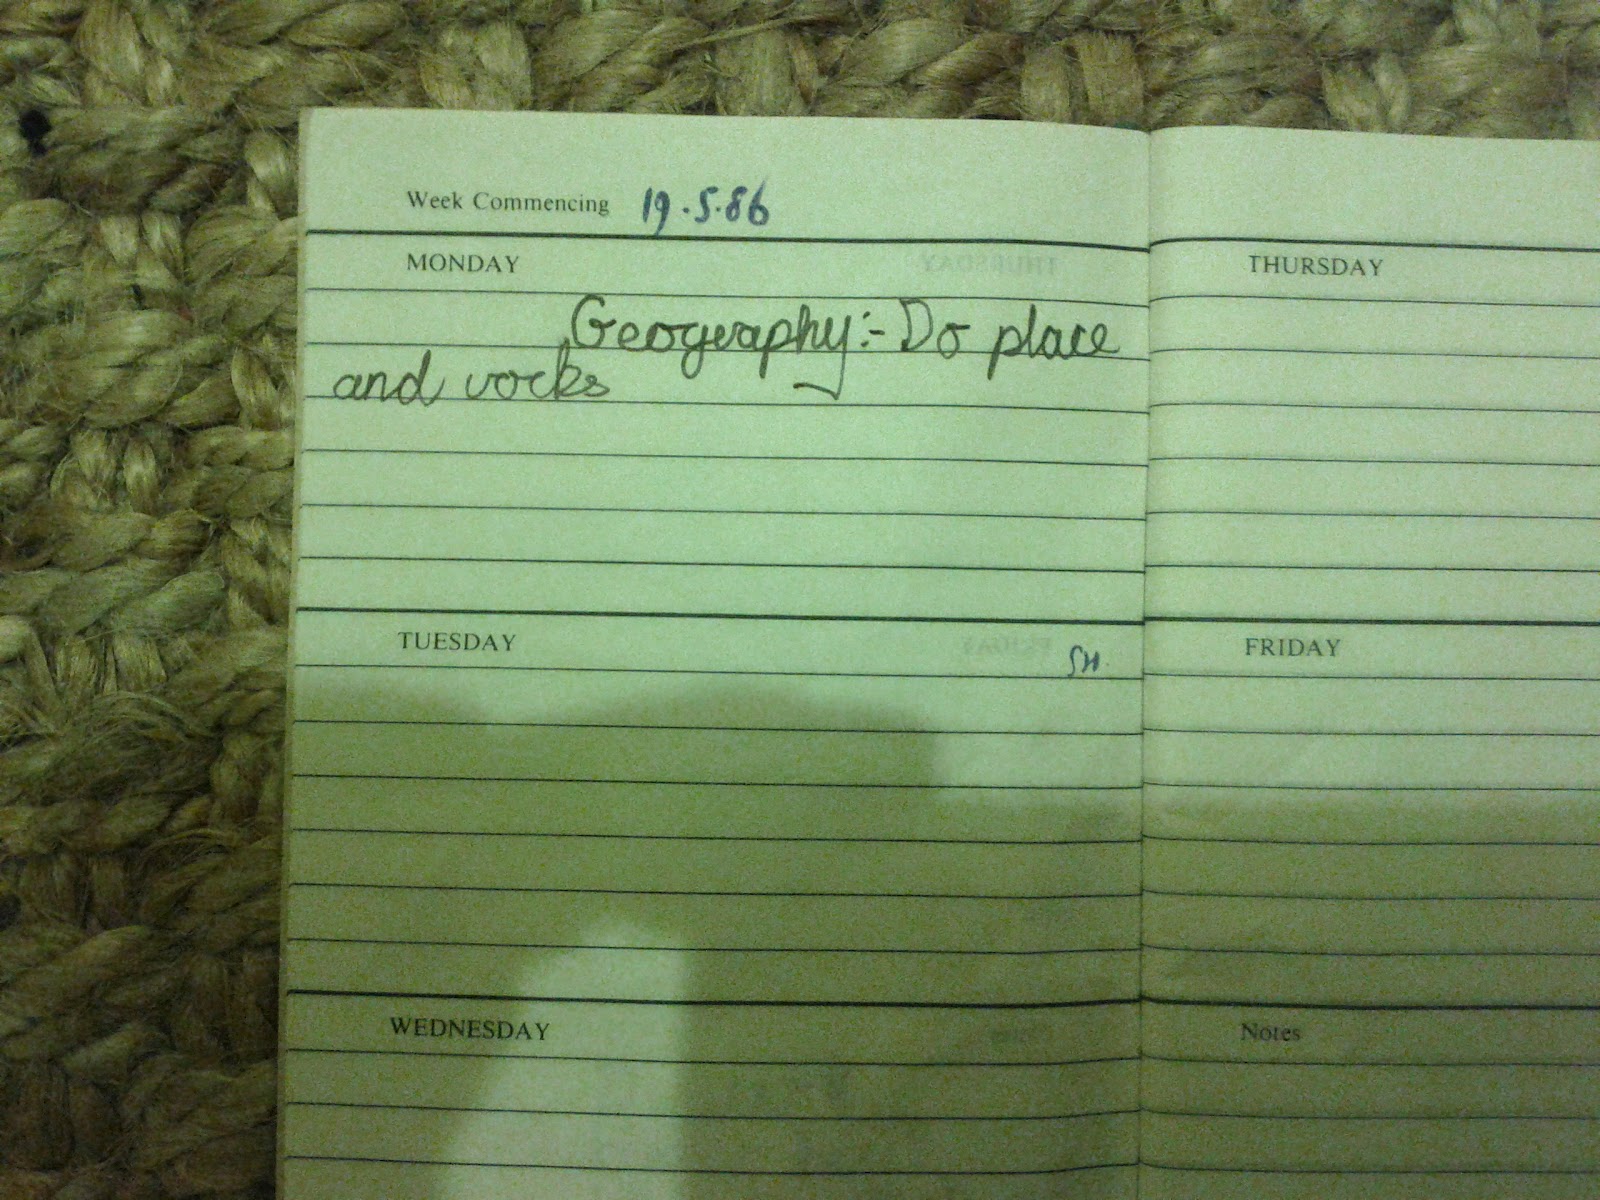 Week Commencing 19.5.86
MONDAY
Geography:- Do place
and rocks
TUESDAY
SH.
WEDNESDAY
THURSDAY
FRIDAY
Notes